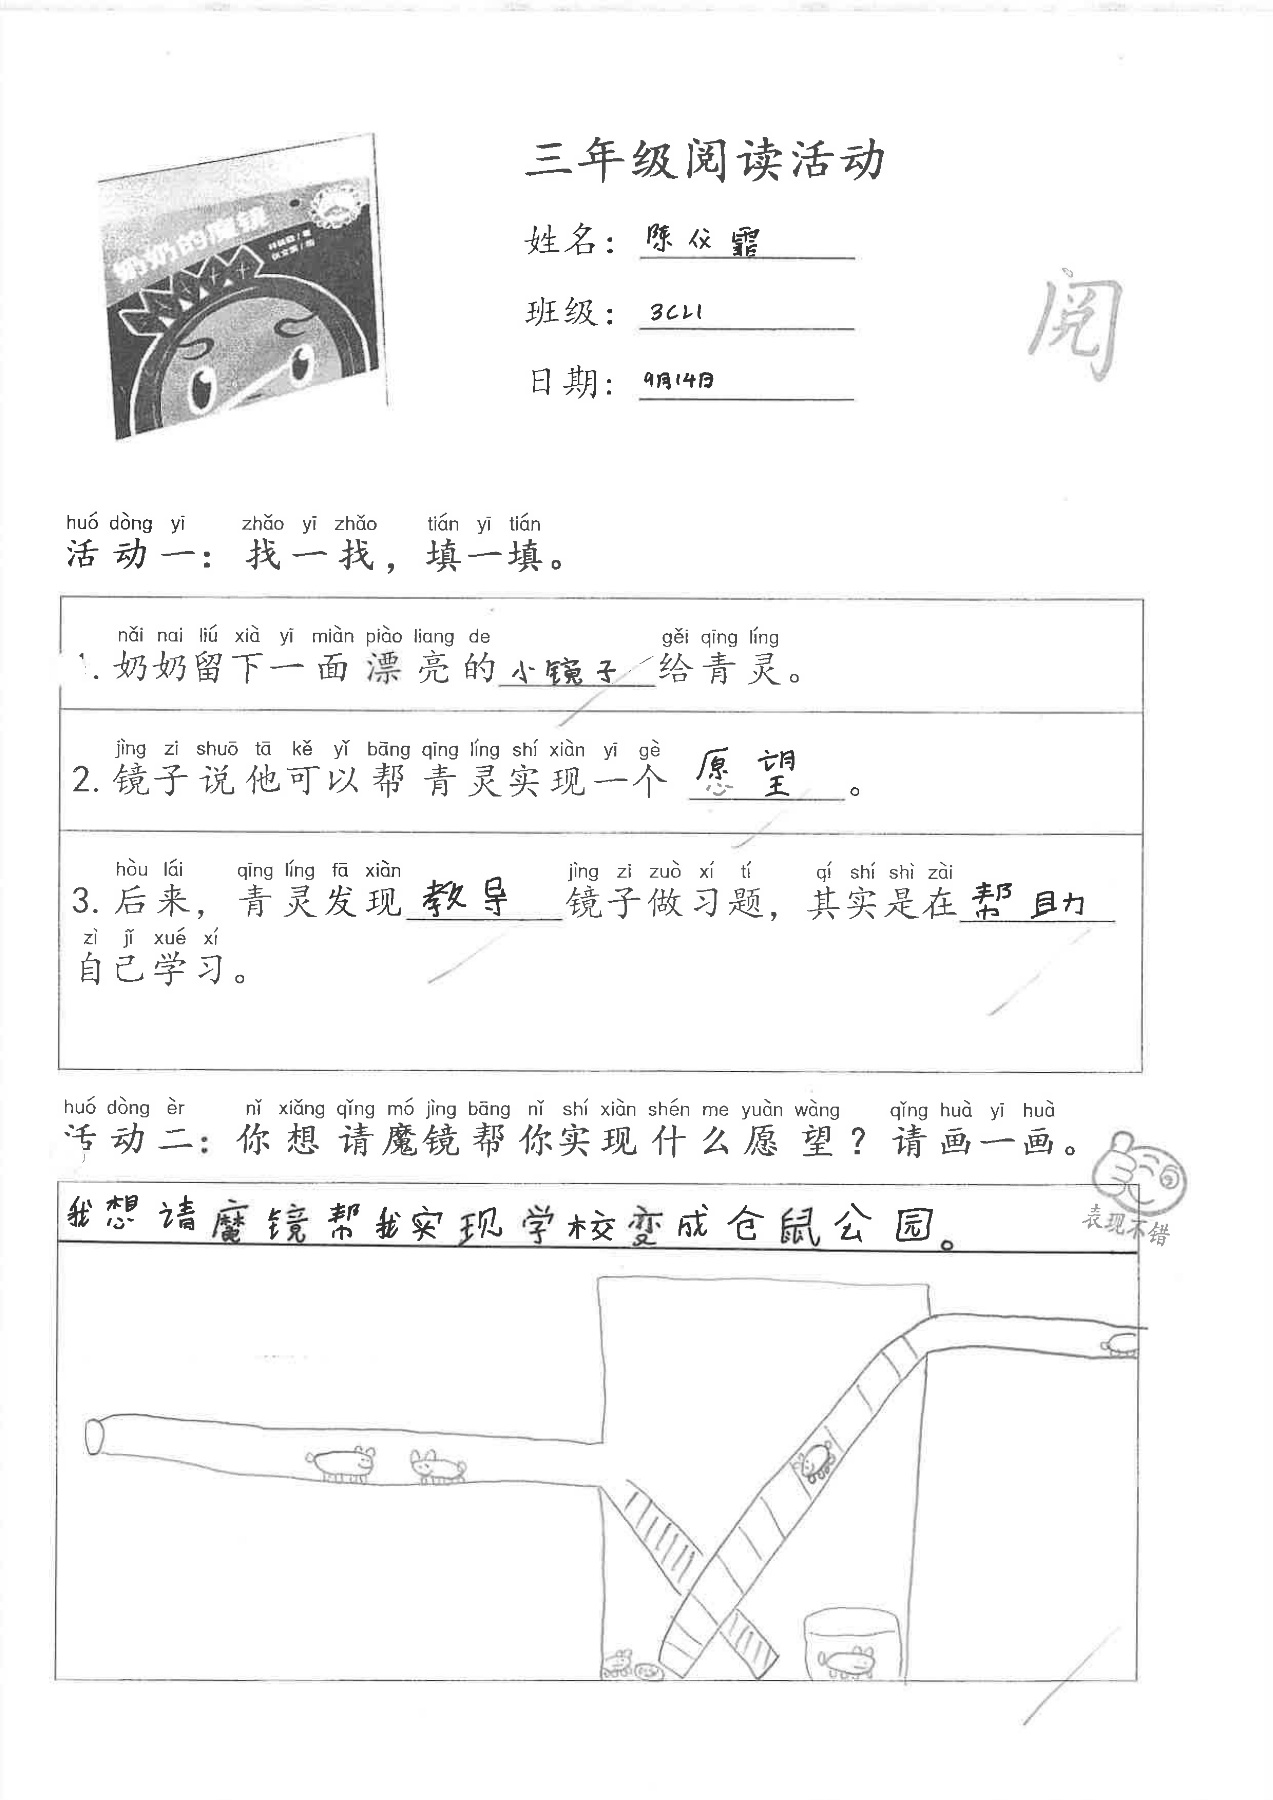 三年级阅读活动
奶奶的魔镜
姓名：陈仪霏
阅
班级：3CL1
日期：9月14日
huó dòng yī zhǎo yī zhǎo tián yī tián
活动一：找一找，填一填。
nǎi nai liú xià yī miàn piào liang de gěi qīng líng
1. 奶奶留下一面漂亮的小镜子给青灵。
jìng zi shuō tā kě yǐ bāng qīng líng shí xiàn yī gè
2. 镜子说他可以帮青灵实现一个愿望。
hòu lái qīng líng fā xiàn jìng zi zuò xí tí qí shí shì zài
3. 后来，青灵发现教导镜子做习题，其实是在帮助
zì jǐ xué xí
自己学习。
huó dòng èr nǐ xiǎng qǐng mó jìng bāng nǐ shí xiàn shén me yuàn wàng qǐng huà yī huà
活动二：你想请魔镜帮你实现什么愿望？请画一画。
我想请魔镜帮我实现学校变成仓鼠公园。
表现不错